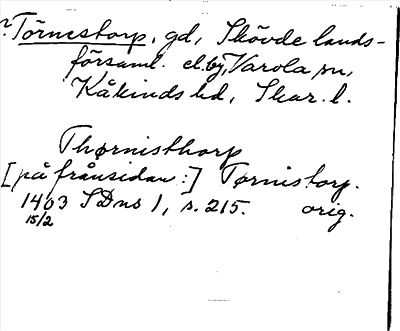 ?Törnestorp, gd, Skövde lands-
församl. el. by, Varola sn,
Kåkinds hd, Skar. l.
Thørnisthorp
[på frånsidan:] Tørnistorp.
1403 SDns 1, s. 215. orig.
15/2